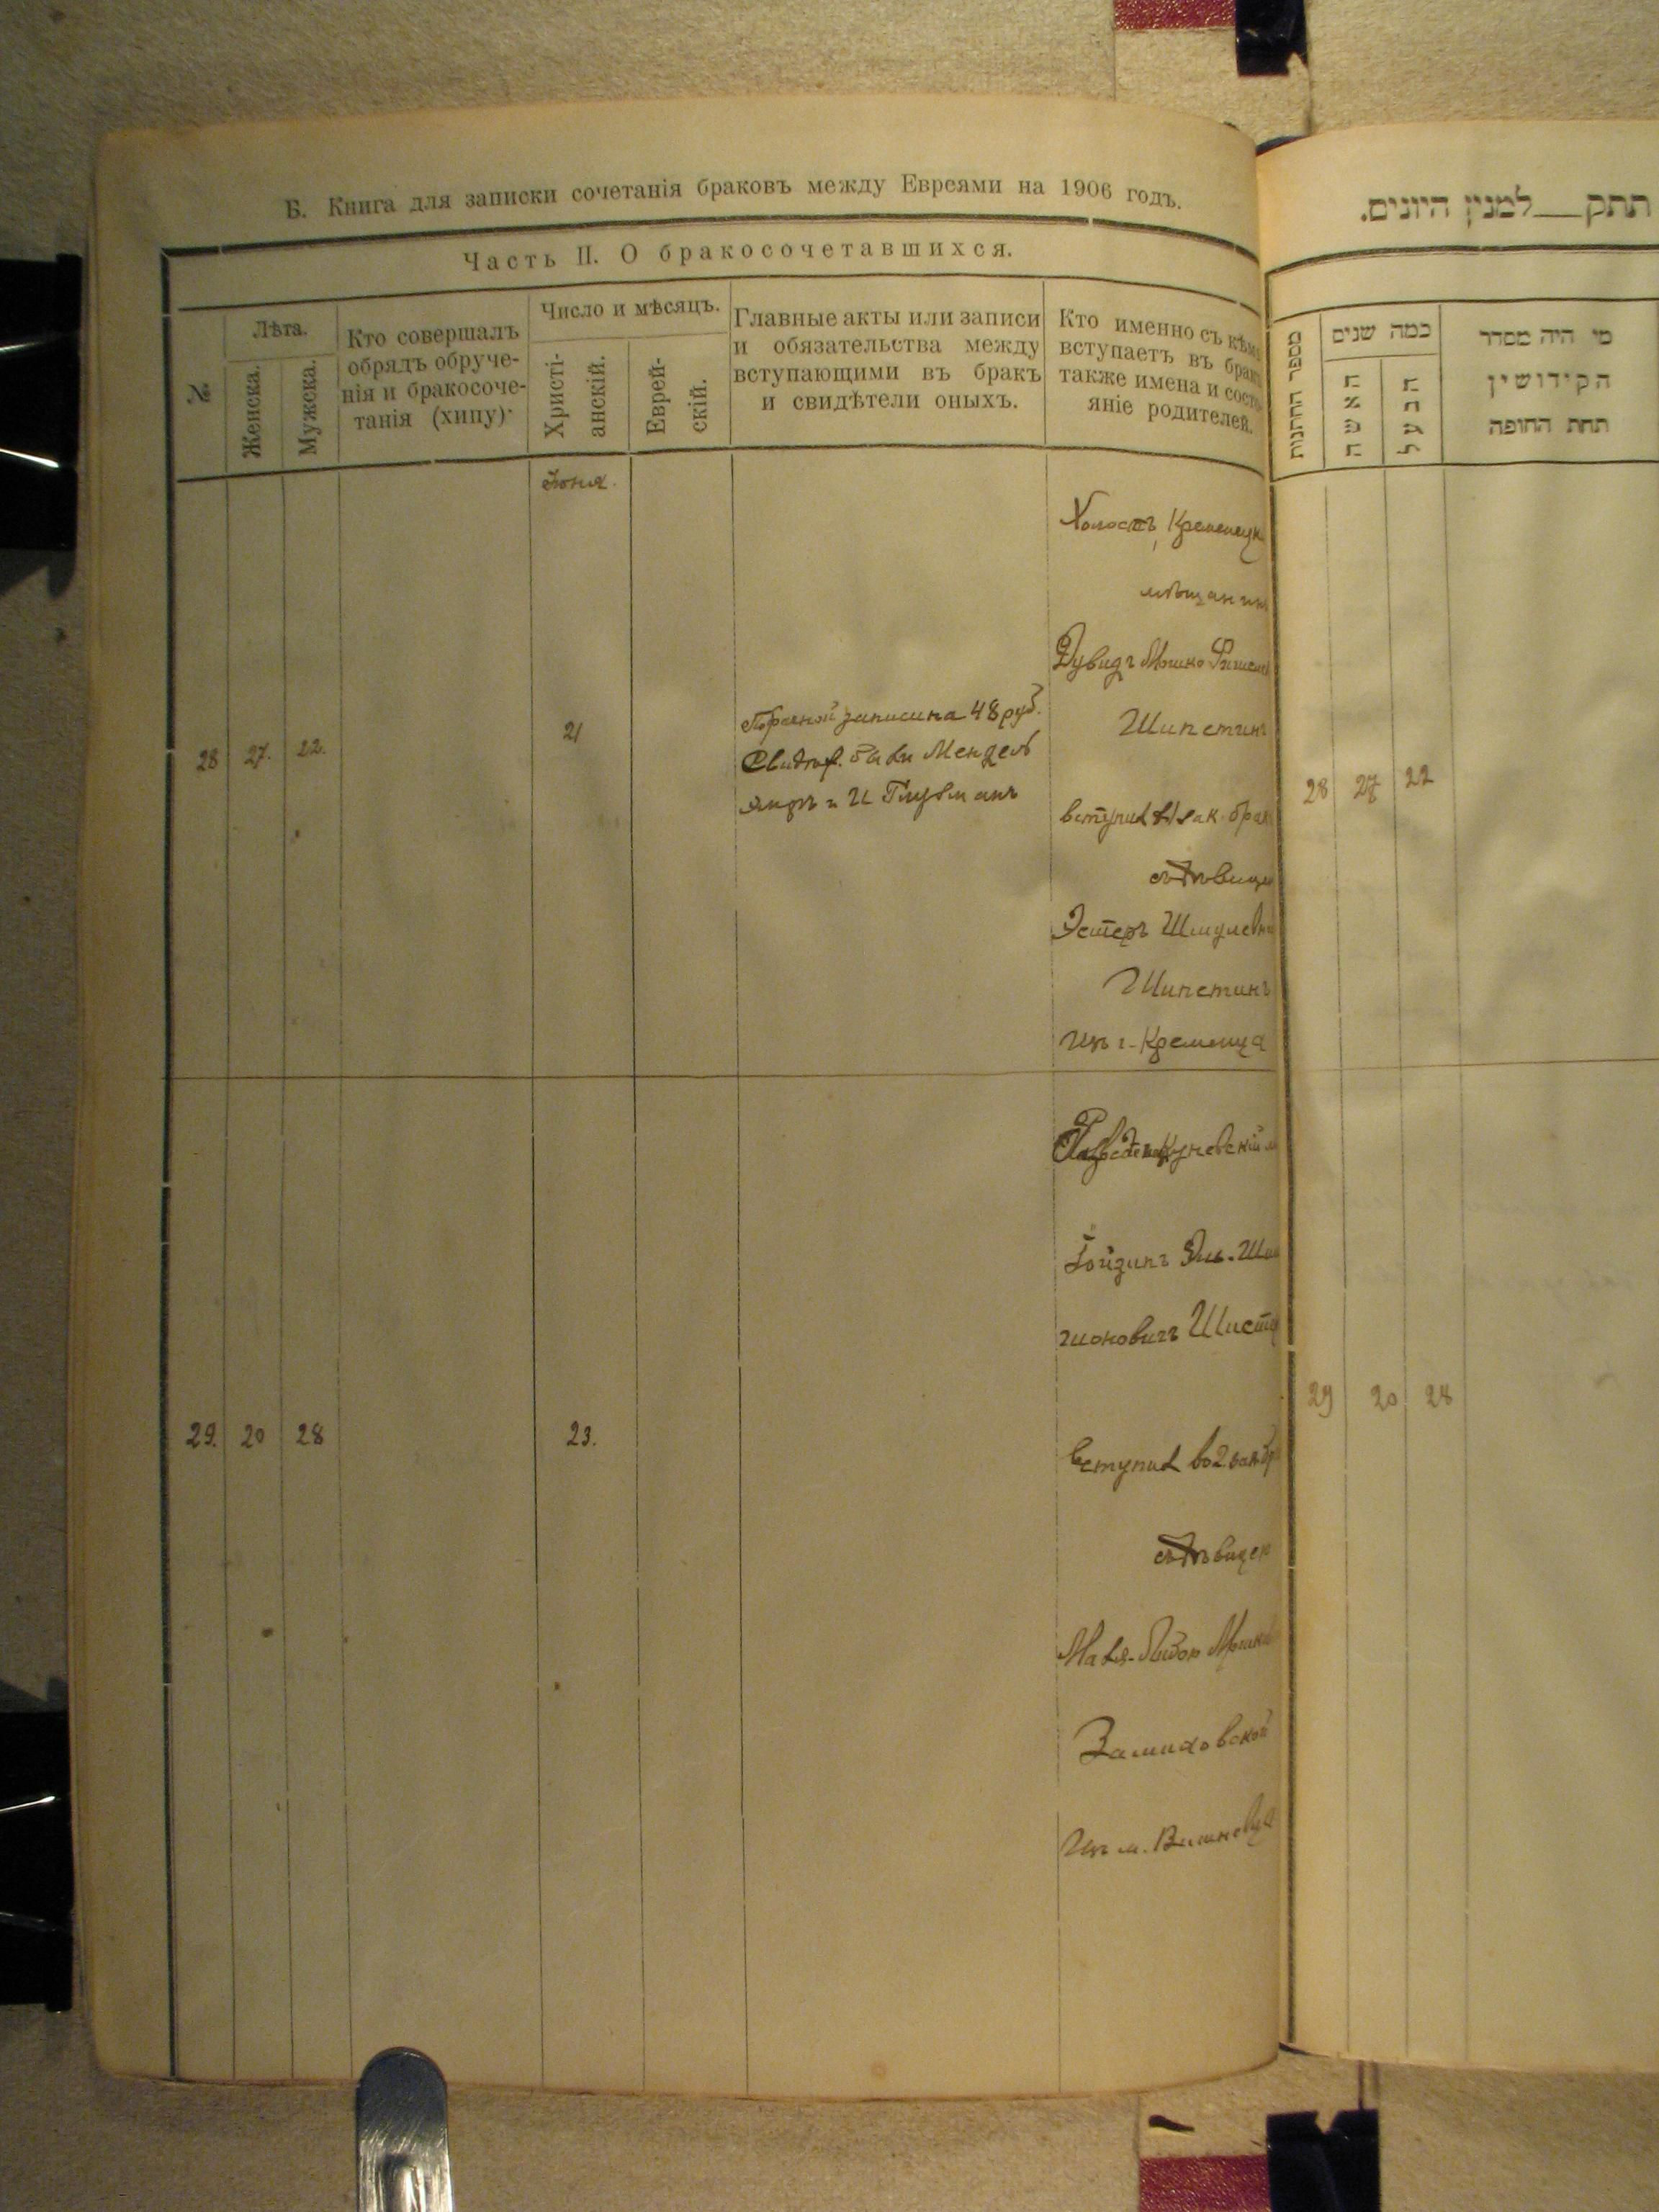 Б. Книга для записки сочетанія браковъ между Евреями на 1906 годъ.
Часть II. О бракосочетавшихся.
№
Лѣта.
Женска.
Мужска.
Кто совершалъ
обрядъ обруче-
нія и бракосоче-
танія (хипу)·
Число и мѣсяцъ.
Христі-
анскій.
Еврей-
скій.
Главные акты или записи
и обязательства между
вступающими въ бракъ
и свидѣтели оныхъ.
Кто именно съ кѣмъ
вступаетъ въ бракъ
также имена и состо-
яніе родителей.
Іюня.
28 27. 22.
21
записи на 48 руб.
были Мендель
и И Глузманъ
Холостъ, Кременецк
мѣщанинъ
Дувидъ Мошко
Шипстинъ
вступил в 1 зак. брак
съ дѣвицею
Эстеръ Шмулевной
Шипстинъ
Изъ г. Кременца
29. 20 28
23.
Разведен Куневскій м
Шмовичъ
вступил во 2 зак бр
съ дѣвицею
Мошк
Изъ м. Вишневца
תתק__למנין היונים.
מספר החתנות
כמה שנים
האשה
הבעל
מי היה מסדר
הקידושין
תחת החופה
28 27 22
29 20 28